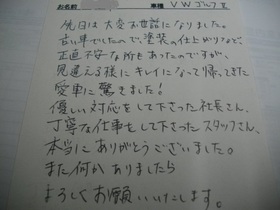 お名前 車種 VWゴルフⅢ
先日は大変お世話になりました。
古い車でしたので、塗装の仕上がりなど、
正直不安な所もあったのですが、
見違える様にキレイになって帰ってきた
愛車に驚きました!
優しい対応をして下さった社長さん、
丁寧な仕事をして下さったスタッフさん、
本当にありがとうございました。
また何かありましたら
よろしくお願いいたします。